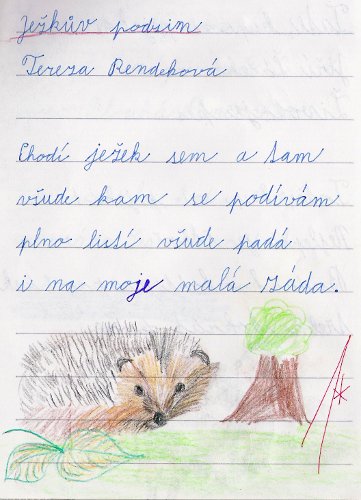 Ježkův podzim
Tereza Rendeková
Chodí ježek sem a tam
všude kam se podívám
plno listí všude padá
i na moje malá záda.